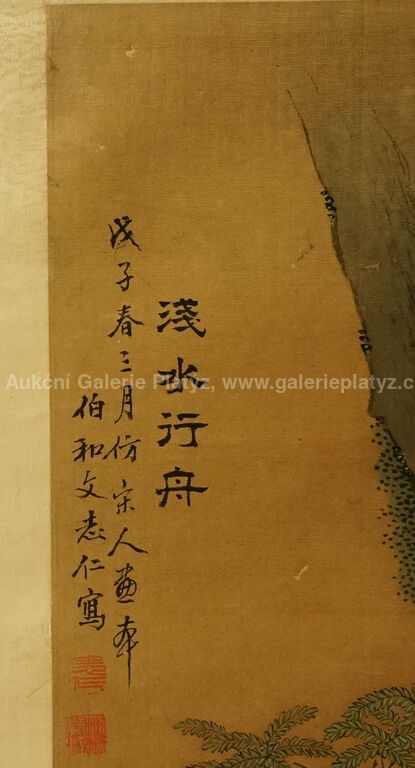 淺水行舟
戊子春三月仿宋人畫本
伯和文志仁寫
Aukční Galerie Platýz, www.galerieplatyz.c